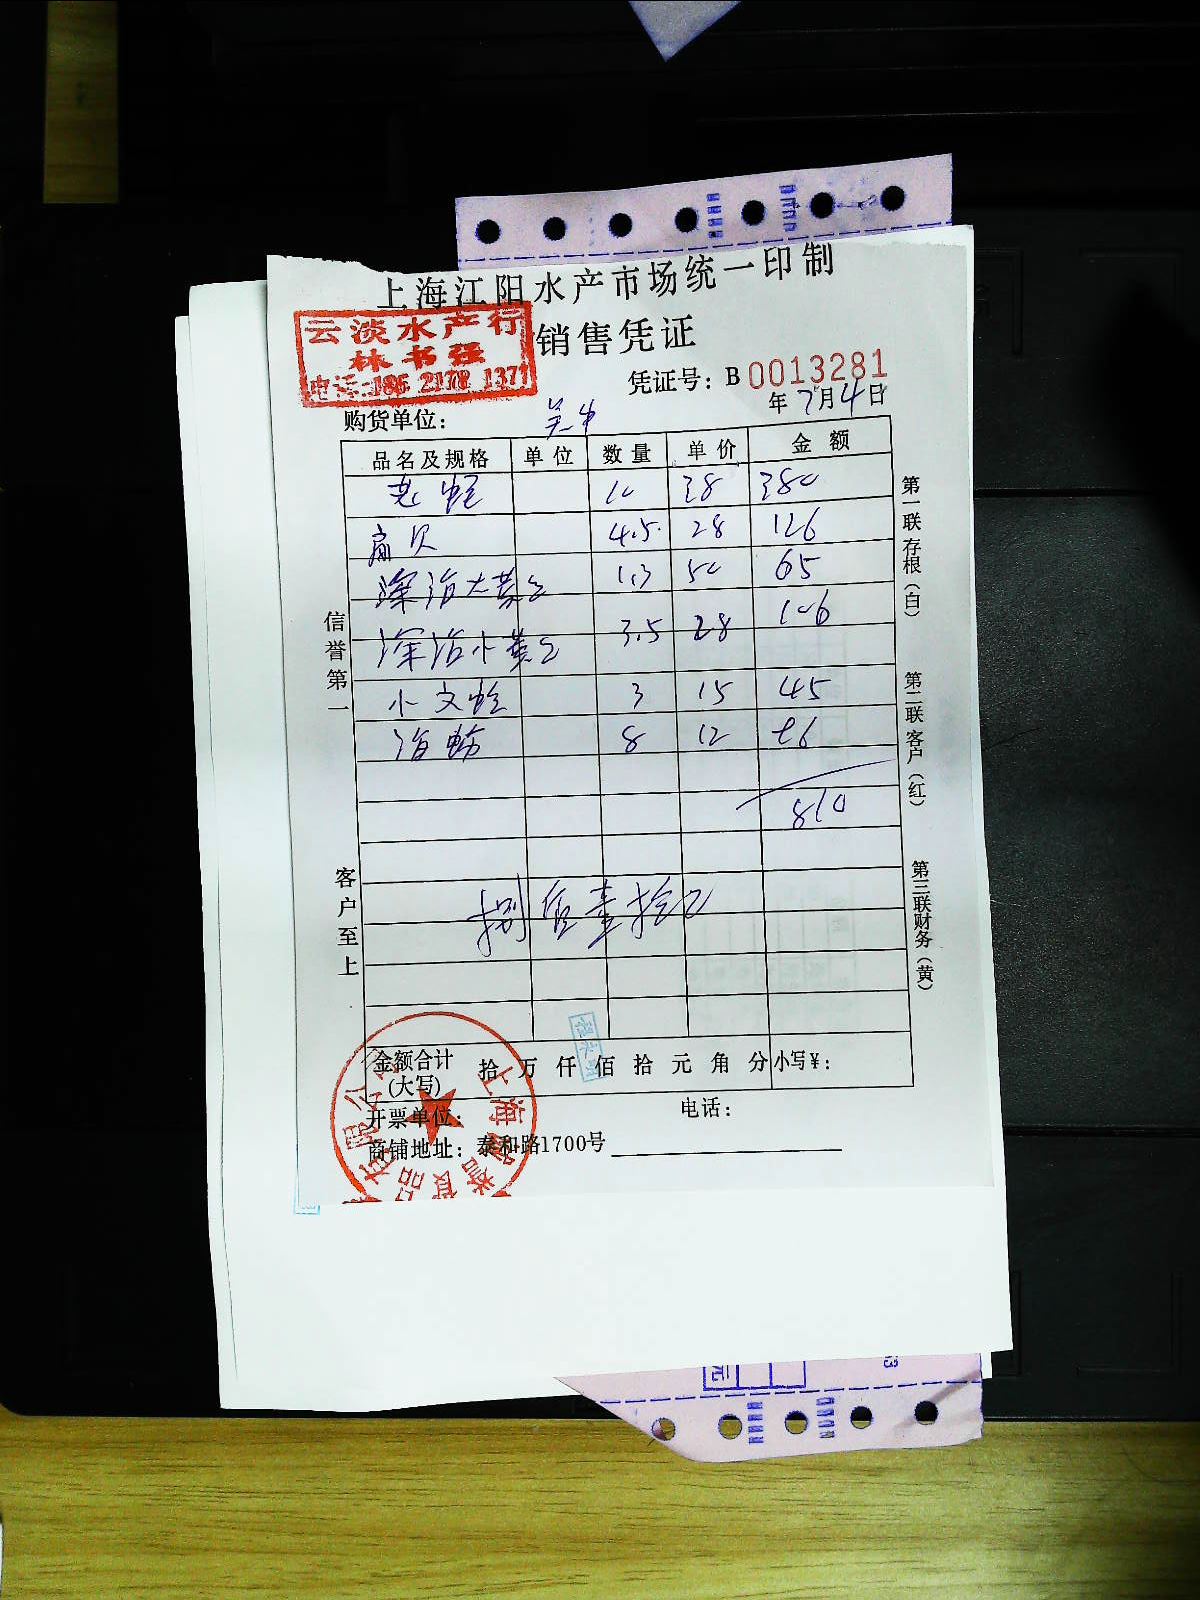 上海江阳水产市场统一印制
销售凭证
云淡水产行
林书强
电话:186 2178 1371
凭证号：B 0013281
年7月4日
购货单位：
品名及规格 单位 数量 单价 金额
老蛏 10 38 380
扁贝 4.5 28 126
深海大黄 1.3 50 65
深海小黄 3.5 28 106
小文蛤 3 15 45
海蛎 8 12 96
810
捌佰壹拾元
信誉第一
客户至上
第一联存根（白）
第二联客户（红）
第三联财务（黄）
金额合计(大写) 拾 万 仟 佰 拾 元 角 分 小写￥：
开票单位： 电话：
商铺地址：泰和路1700号
上海
食品
有限公